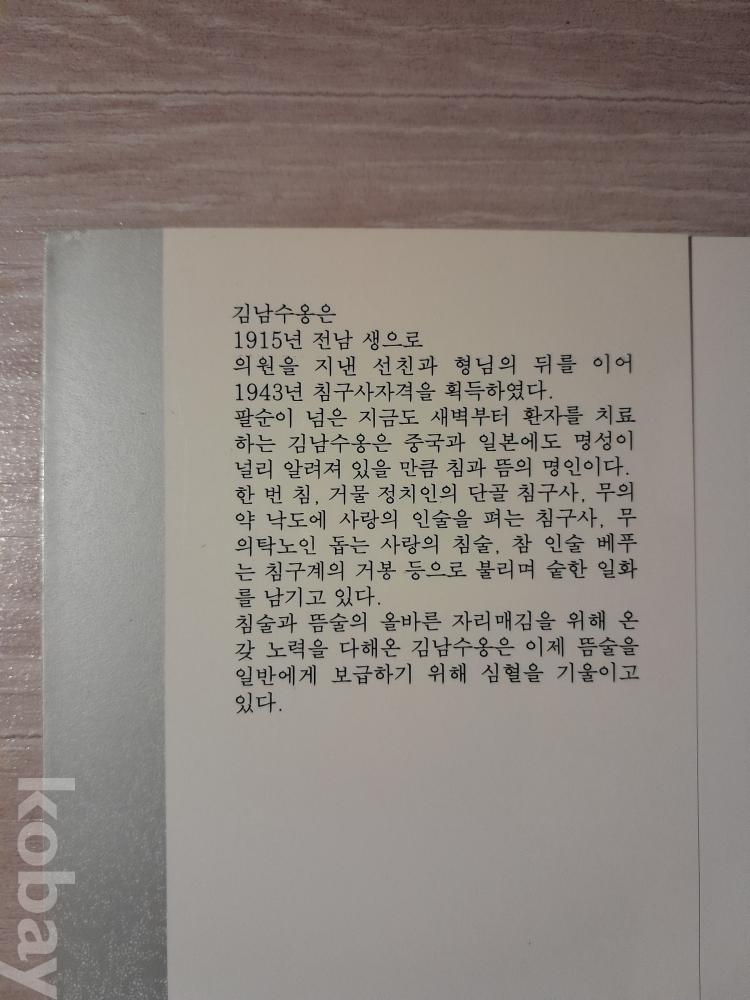 김남수옹은
1915년 전남 생으로
의원을 지낸 선친과 형님의 뒤를 이어
1943년 침구사자격을 획득하였다.
팔순이 넘은 지금도 새벽부터 환자를 치료
하는 김남수옹은 중국과 일본에도 명성이
널리 알려져 있을 만큼 침과 뜸의 명인이다.
한 번 침, 거물 정치인의 단골 침구사, 무의
약 낙도에 사랑의 인술을 펴는 침구사, 무
의탁노인 돕는 사랑의 침술, 참 인술 베푸
는 침구계의 거봉 등으로 불리며 숱한 일화
를 남기고 있다.
침술과 뜸술의 올바른 자리매김을 위해 온
갖 노력을 다해온 김남수옹은 이제 뜸술을
일반에게 보급하기 위해 심혈을 기울이고
있다.
kobay